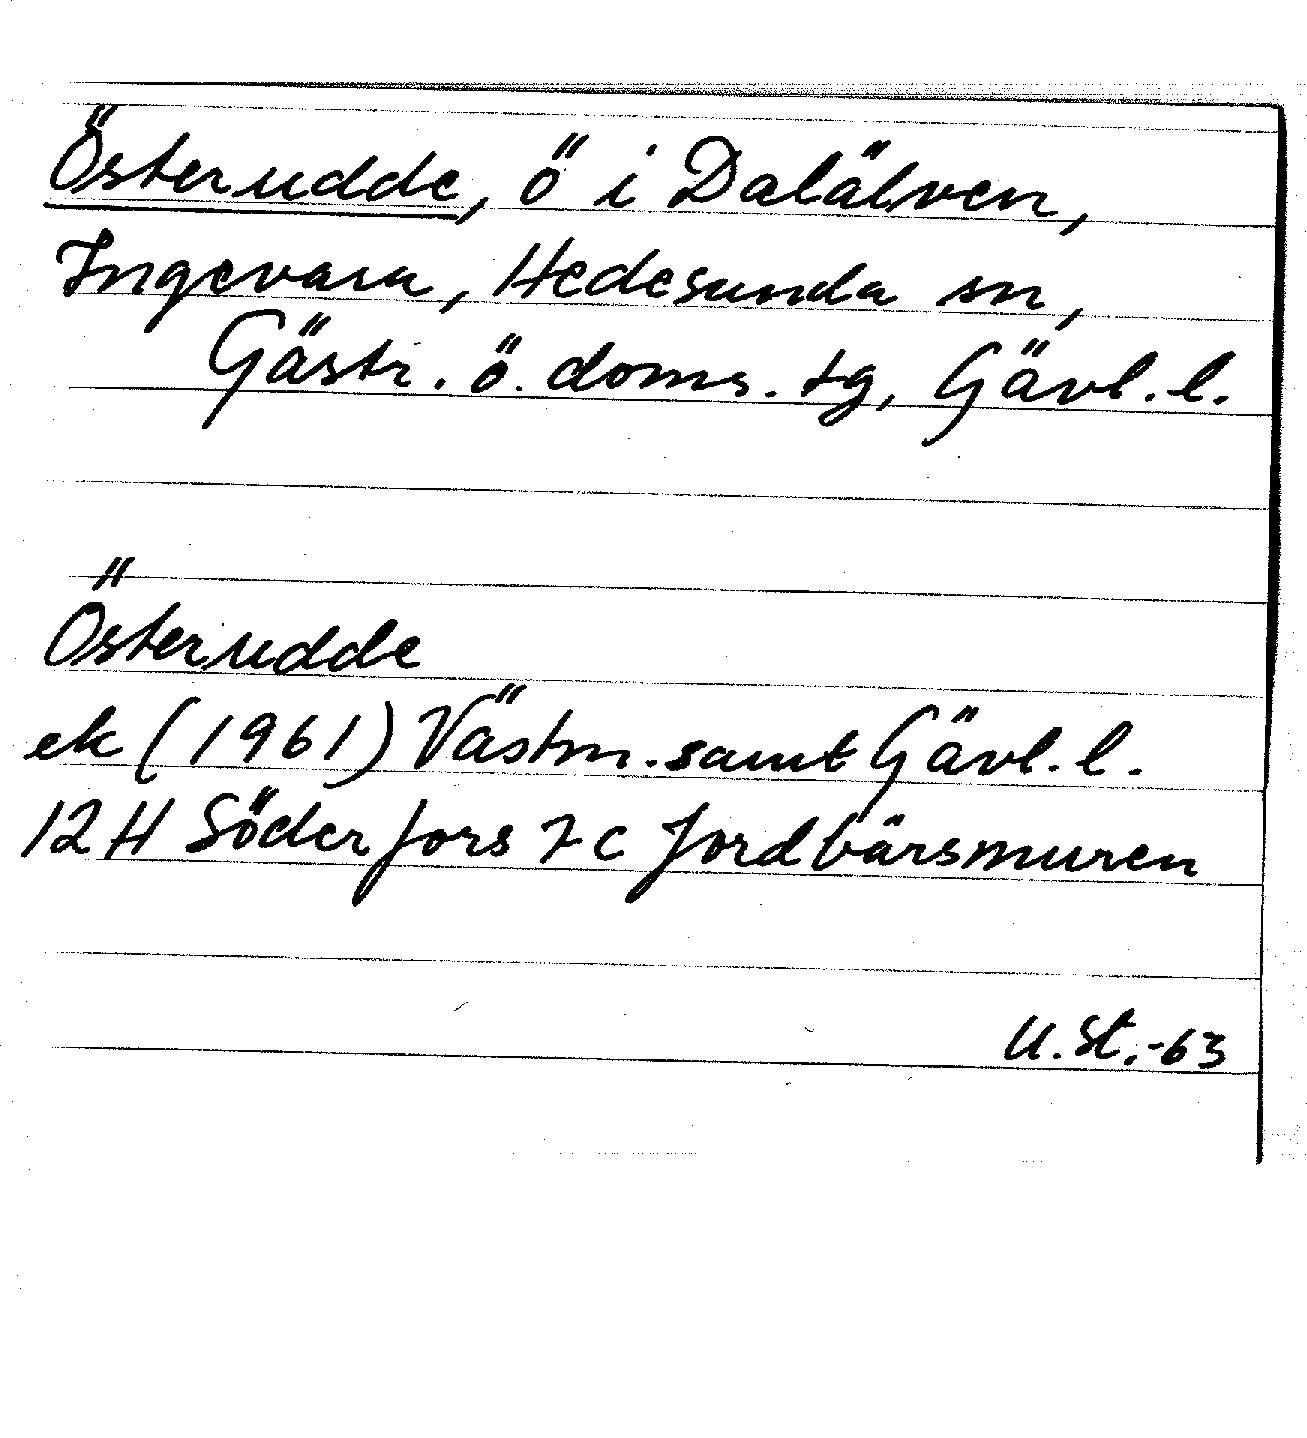 Österudde, ö i Dalälven,
Ingevara, Hedesunda sn,
Gästr. ö. doms. tg, Gävl. l.
Österudde
ek (1961) Västm. samt Gävl. l.
12 H Söderfors 7 c Jordbärsmuren
U. St. -63